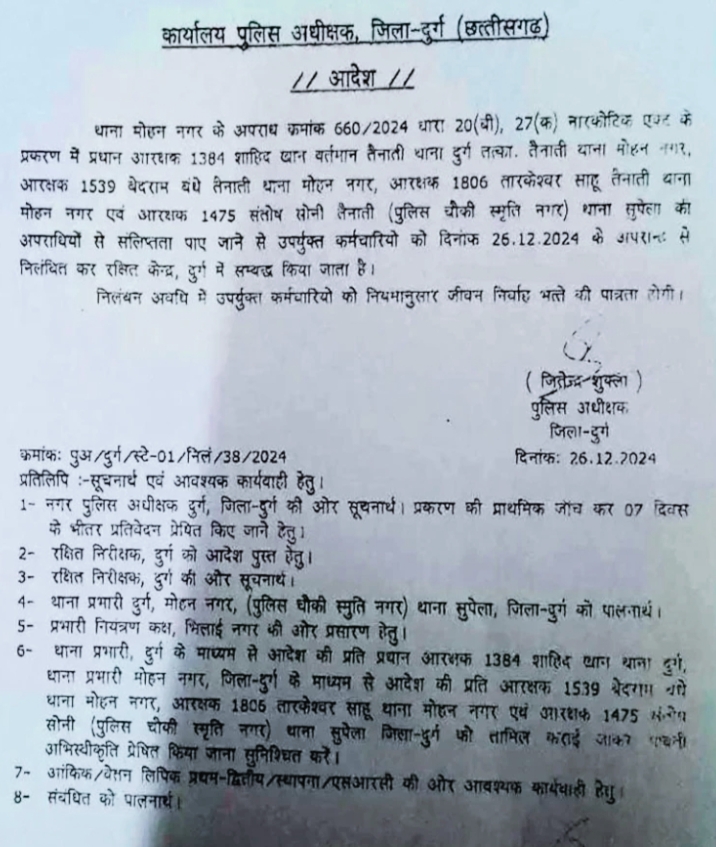 कार्यालय पुलिस अधीक्षक, जिला-दुर्ग (छत्तीसगढ़)
// आदेश //
थाना मोहन नगर के अपराध क्रमांक 660/2024 धारा 20(बी), 27(क) नारकोटिक एक्ट के
प्रकरण में प्रधान आरक्षक 1384 शाहिद खान वर्तमान तैनाती थाना दुर्ग तत्का. तैनाती थाना मोहन नगर,
आरक्षक 1539 बेदराम बंधे तैनाती थाना मोहन नगर, आरक्षक 1806 तारकेश्वर साहू तैनाती थाना
मोहन नगर एवं आरक्षक 1475 संतोष सोनी तैनाती (पुलिस चौकी स्मृति नगर) थाना सुपेला की
अपराधियों से संलिप्तता पाए जाने से उपर्युक्त कर्मचारियो को दिनांक 26.12.2024 के अपरान्ह से
निलंबित कर रक्षित केन्द्र, दुर्ग में सम्बद्ध किया जाता है।
निलंबन अवधि में उपर्युक्त कर्मचारियो को नियमानुसार जीवन निर्वाह भत्ते की पात्रता होगी।
( जितेन्द्र शुक्ला )
पुलिस अधीक्षक
जिला-दुर्ग
क्रमांक: पुअ/दुर्ग/स्टे-01/निलं/38/2024
दिनांक: 26.12.2024
प्रतिलिपि :-सूचनार्थ एवं आवश्यक कार्यवाही हेतु।
1- नगर पुलिस अधीक्षक दुर्ग, जिला-दुर्ग की ओर सूचनार्थ। प्रकरण की प्राथमिक जॉच कर 07 दिवस
के भीतर प्रतिवेदन प्रेषित किए जाने हेतु।
2- रक्षित निरीक्षक, दुर्ग को आदेश पुस्त हेतु।
3- रक्षित निरीक्षक, दुर्ग की ओर सूचनार्थ।
4- थाना प्रभारी दुर्ग, मोहन नगर, (पुलिस चौकी स्मृति नगर) थाना सुपेला, जिला-दुर्ग को पालनार्थ।
5- प्रभारी नियत्रण कक्ष, भिलाई नगर की ओर प्रसारण हेतु।
6- थाना प्रभारी, दुर्ग के माध्यम से आदेश की प्रति प्रधान आरक्षक 1384 शाहिद खान थाना दुर्ग,
थाना प्रभारी मोहन नगर, जिला-दुर्ग के माध्यम से आदेश की प्रति आरक्षक 1539 बेदराम बंधे
थाना मोहन नगर, आरक्षक 1806 तारकेश्वर साहू थाना मोहन नगर एवं आरक्षक 1475 संतोष
सोनी (पुलिस चौकी स्मृति नगर) थाना सुपेला जिला-दुर्ग को तामिल कराई जाकर
अभिस्वीकृति प्रेषित किया जाना सुनिश्चित करें।
7- आंकिक/वेतन लिपिक प्रथम-द्वितीय/स्थापना/एसआरसी की ओर आवश्यक कार्यवाही हेतु।
8- संबंधित को पालनार्थ।